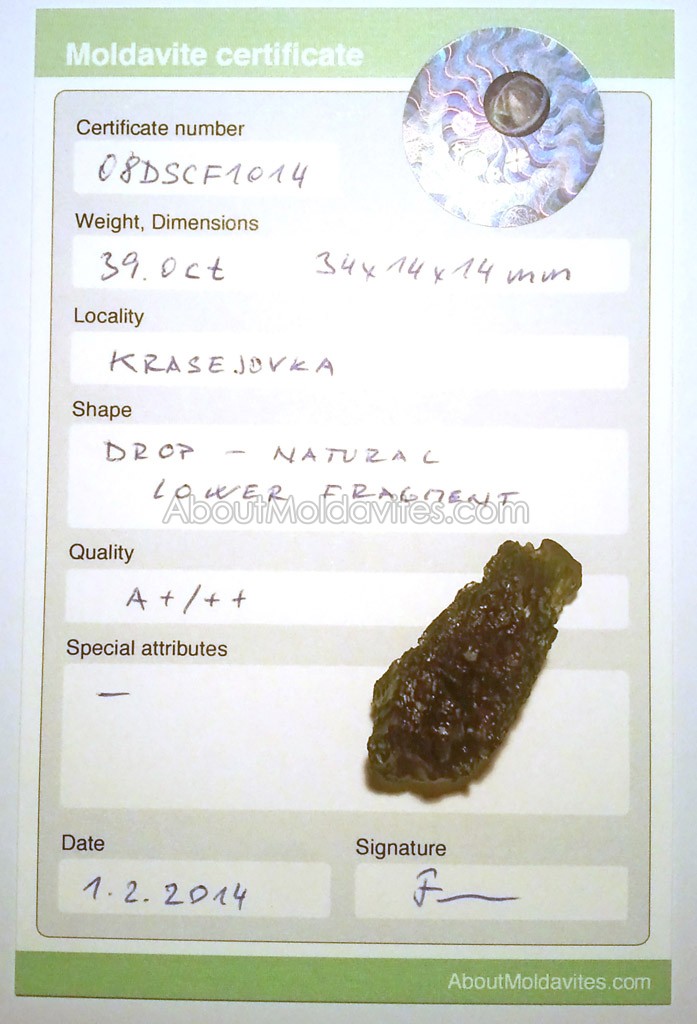 Moldavite certificate
Certificate number
08DSCF1014
Weight, Dimensions
39.0ct 34x14x14mm
Locality
KRASEJOVKA
Shape
DROP - NATURAL
LOWER FRAGMENT
AboutMoldavites.com
Quality
A+/++
Special attributes
—
Date
Signature
1.2.2014
AboutMoldavites.com